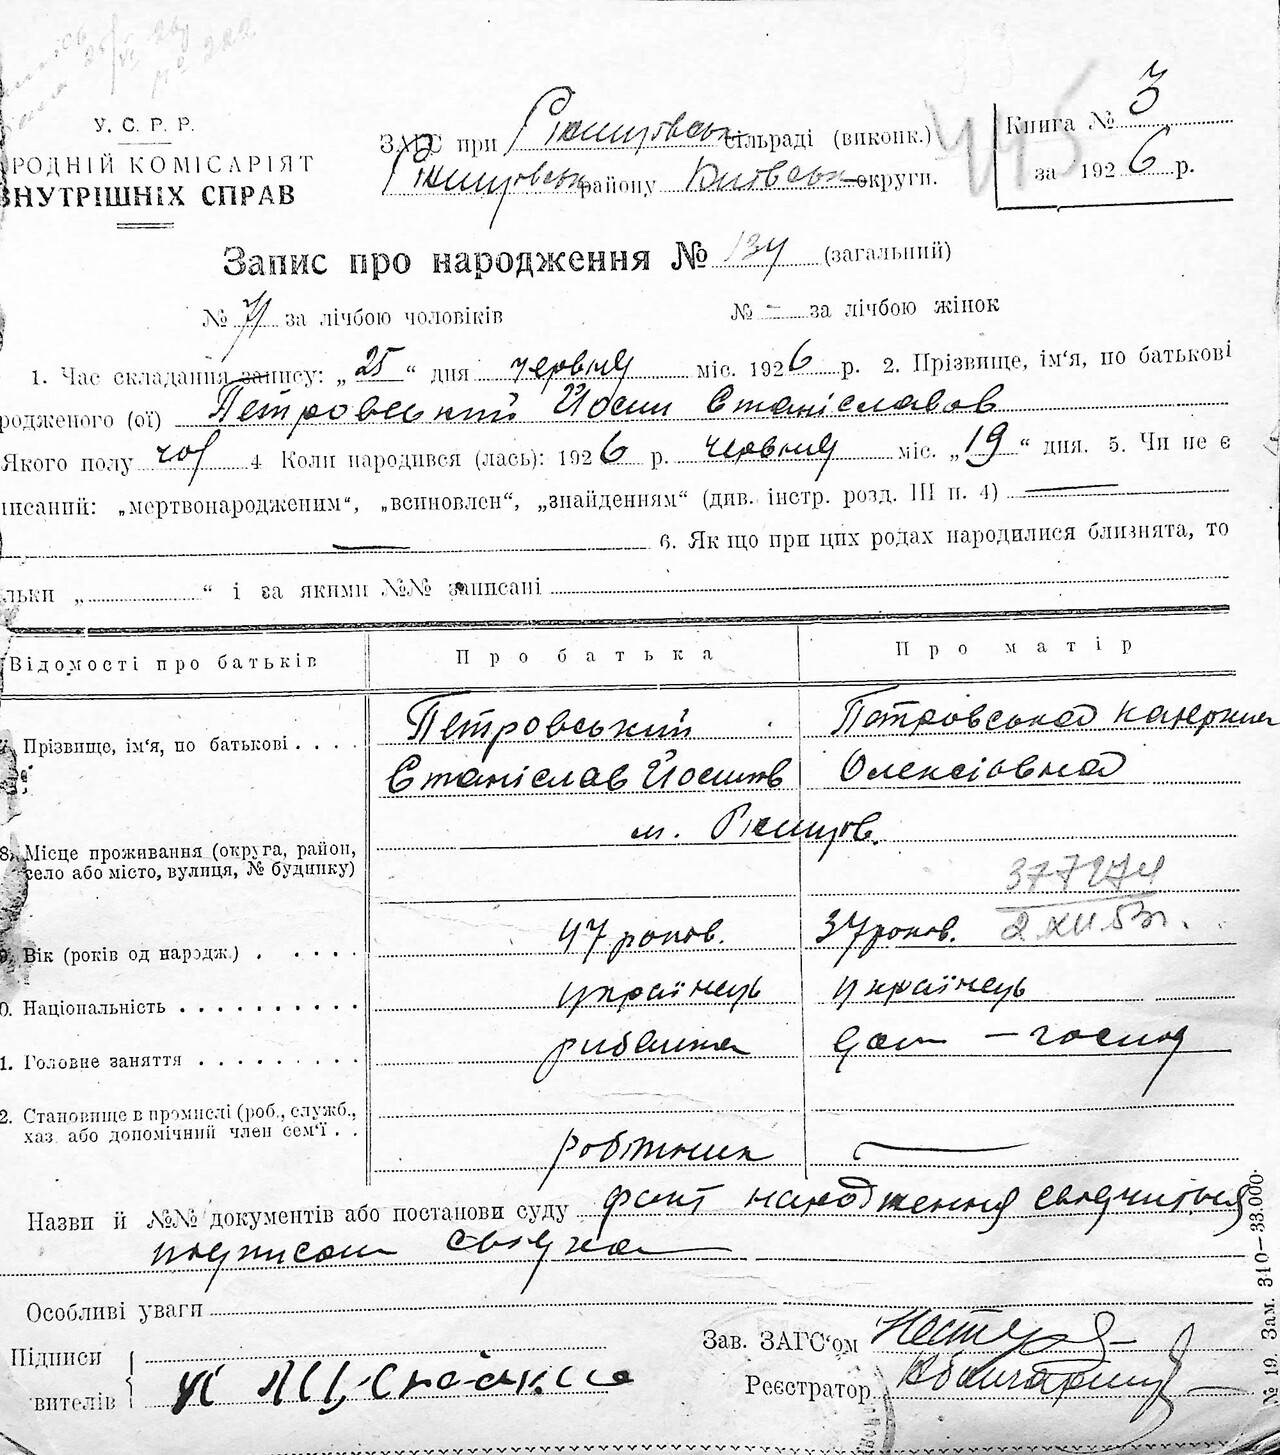 У. С. Р. Р.
РОДНІЙ КОМІСАРІЯТ
ВНУТРІШНІХ СПРАВ
ЗАГС при Ржищовськ сільраді (виконк.)
Ржищовськ району Київськ округи.
Книга № 3
за 1926 р.
445
Запис про народження № 134 (загальний)
№ 71 за лічбою чоловіків № - за лічбою жінок
1. Час складання запису: „25“ дня червня міс. 1926 р. 2. Прізвище, ім'я, по батькові
родженого (ої) Петровський Йосип Станіславов
Якого полу чол 4 Коли народився (лась): 1926 р. червня міс. „19“ дня. 5. Чи не є
писаний: „мертвонародженим“, „всиновлен“, „знайденням“ (див. інстр. розд. III п. 4) —
— 6. Як що при цих родах народилися близнята, то
льки „ “ і за якими №№ записані
Відомості про батьків Про батька Про матір
Прізвище, ім'я, по батькові . . . . Петровський Петровська Катерина
Станіслав Йосипов Олексіовна
м. Ржищов.
8. Місце проживання (округа, район,
село або місто, вулиця, № будинку)
377274
2 XII 53 г.
9. Вік (років од народж.) . . . . . . 47 років. 37 років.
0. Національність . . . . . . . . . . українець українець
1. Головне заняття . . . . . . . . . рибалка дом — господ
2. Становище в промислі (роб., служб.,
хаз. або допомічний член сем'ї . .
робітник —
Назви й №№ документів або постанови суду факт народження свідчиться
підписом свідка
Особливі уваги
Підписи
вителів
Зав. ЗАГС'ом
Реєстратор
№ 19. Зам. 310—33.000.